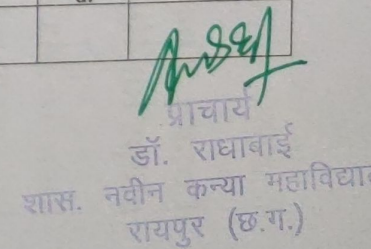 प्राचार्य
डॉ. राधाबाई
शास. नवीन कन्या महाविद्या
रायपुर (छ.ग.)